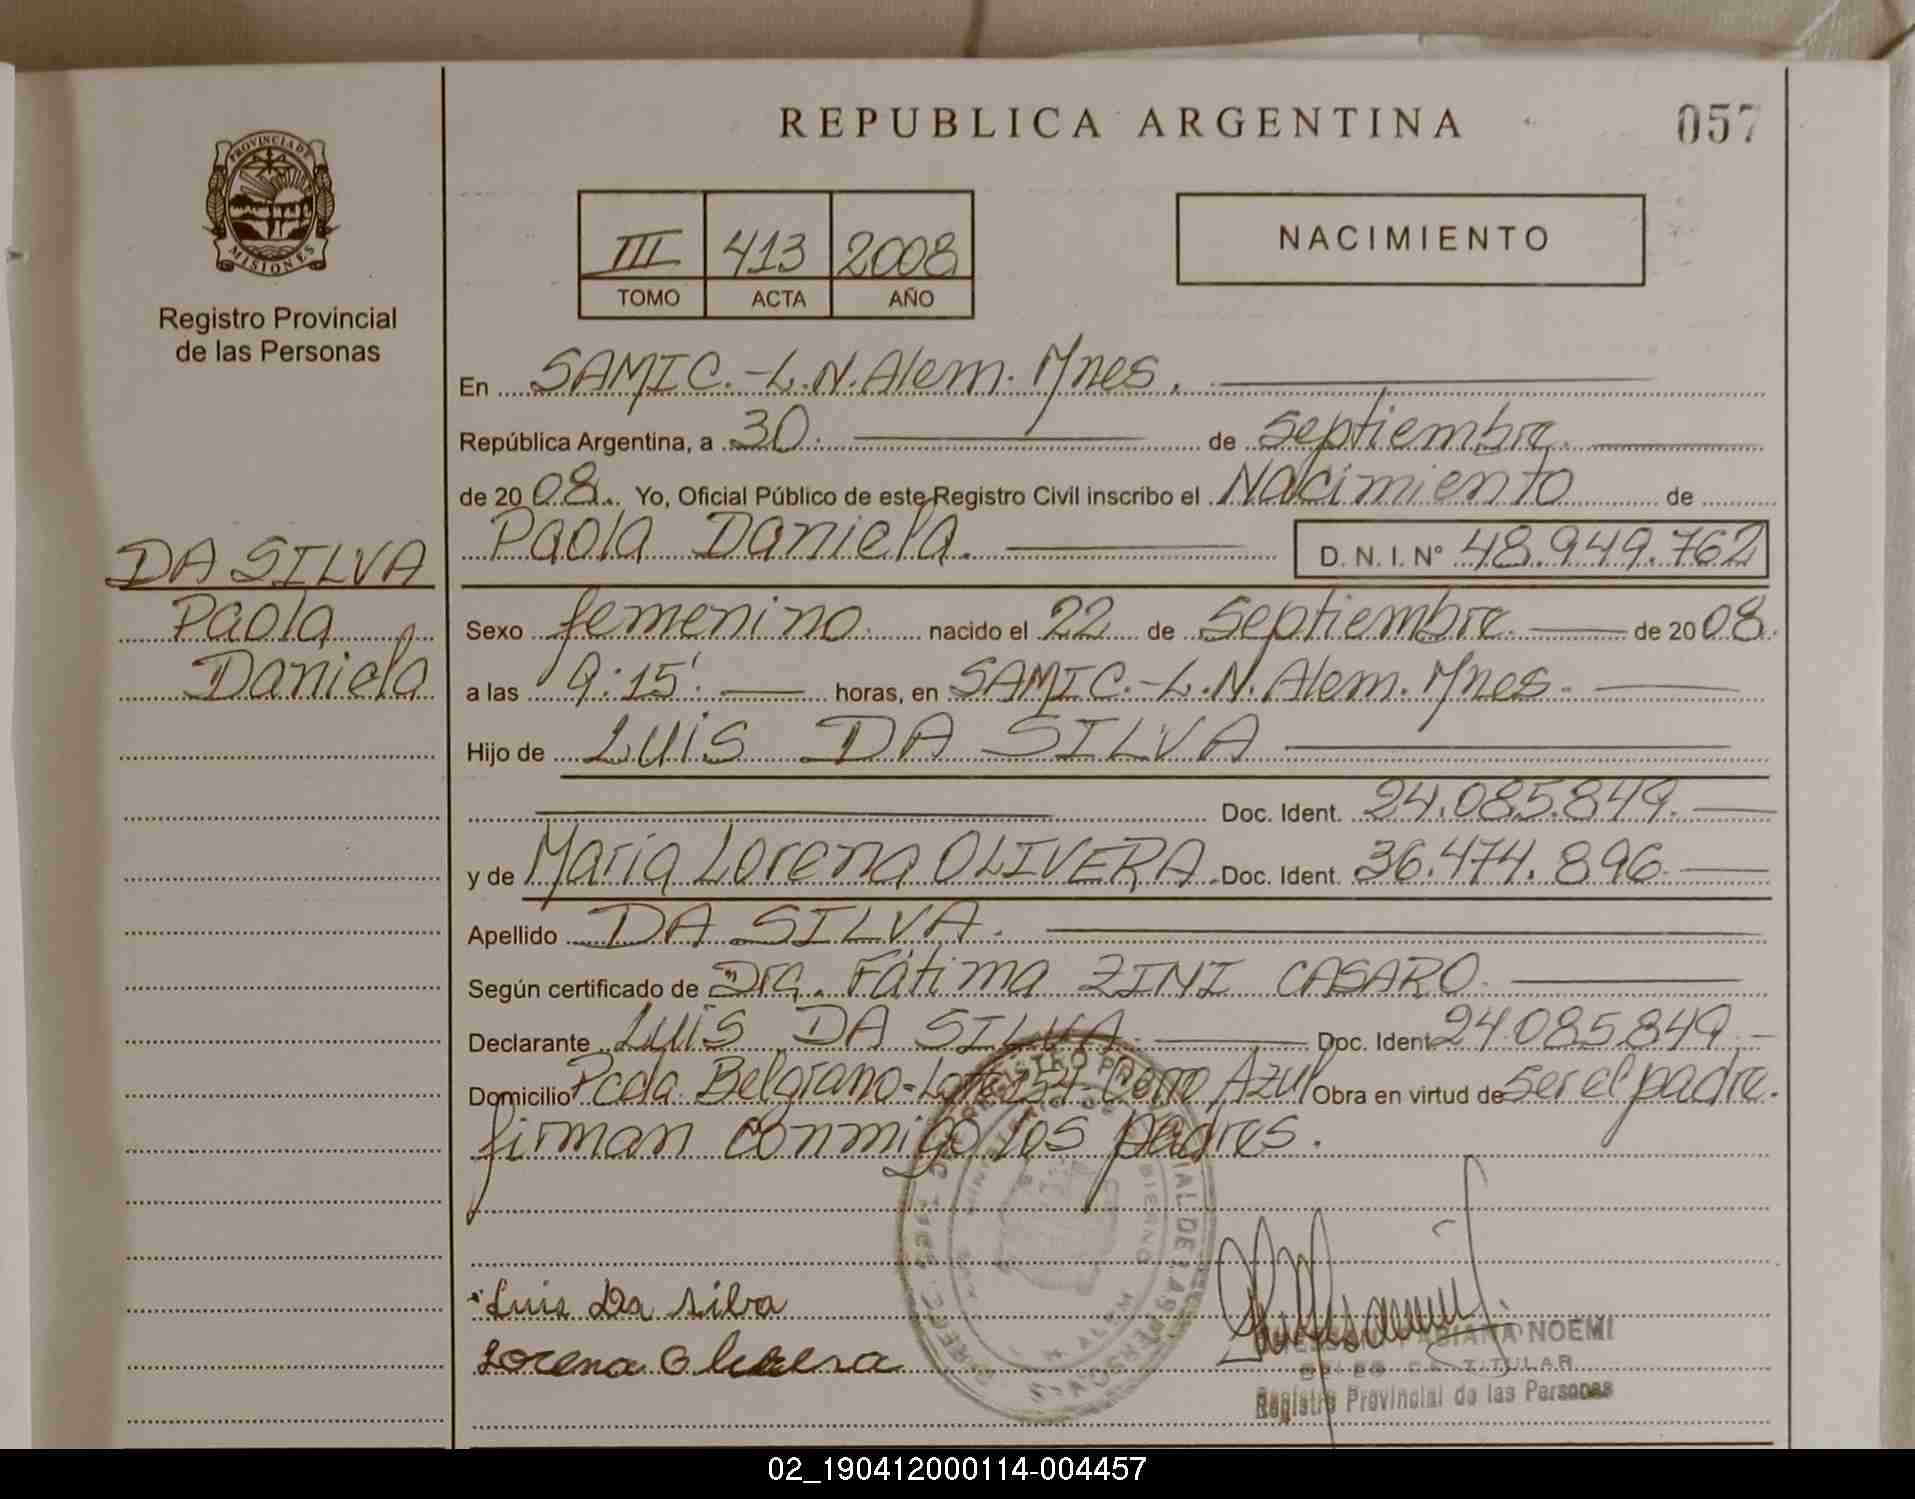 REPUBLICA ARGENTINA
057
PROVINCIA DE
MISIONES
Registro Provincial
de las Personas
III 413 2008
TOMO ACTA AÑO
NACIMIENTO
En SAMIC.-L.N.Alem. Mnes.
República Argentina, a 30. de septiembre.
de 2008. Yo, Oficial Público de este Registro Civil inscribo el Nacimiento de
Paola Daniela. D. N. I. Nº 48.949.762
DA SILVA
Paola
Daniela
Sexo femenino. nacido el 22 de septiembre. de 2008.
a las 9:15'. horas, en SAMIC.-L.N. Alem. Mnes.
Hijo de Luis DA SILVA
Doc. Ident. 24.085.849.
y de María Lorena OLIVERA. Doc. Ident. 36.474.896.
Apellido DA SILVA.
Según certificado de Dra. Fátima ZINI CASARO.
Declarante Luis DA SILVA. Doc. Ident. 24.085.849.
Domicilio Pcda. Belgrano-Lote 154-Cerro Azul Obra en virtud de ser el padre.
firman conmigo los padres.
Luis Da silva
Lorena Olivera
FABIANA NOEMI
TITULAR
Registro Provincial de las Personas
02_190412000114-004457